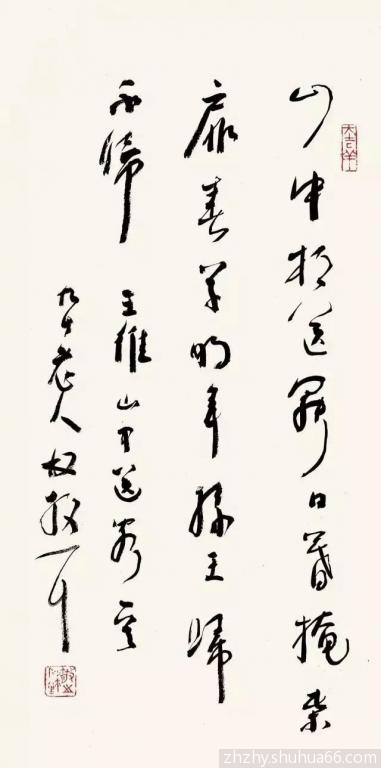 山中相送罷日暮掩柴
扉春草明年綠王歸
不歸 王維山中送
九十老人林散耳
大吉羊
zhzhy.shuhua66.com